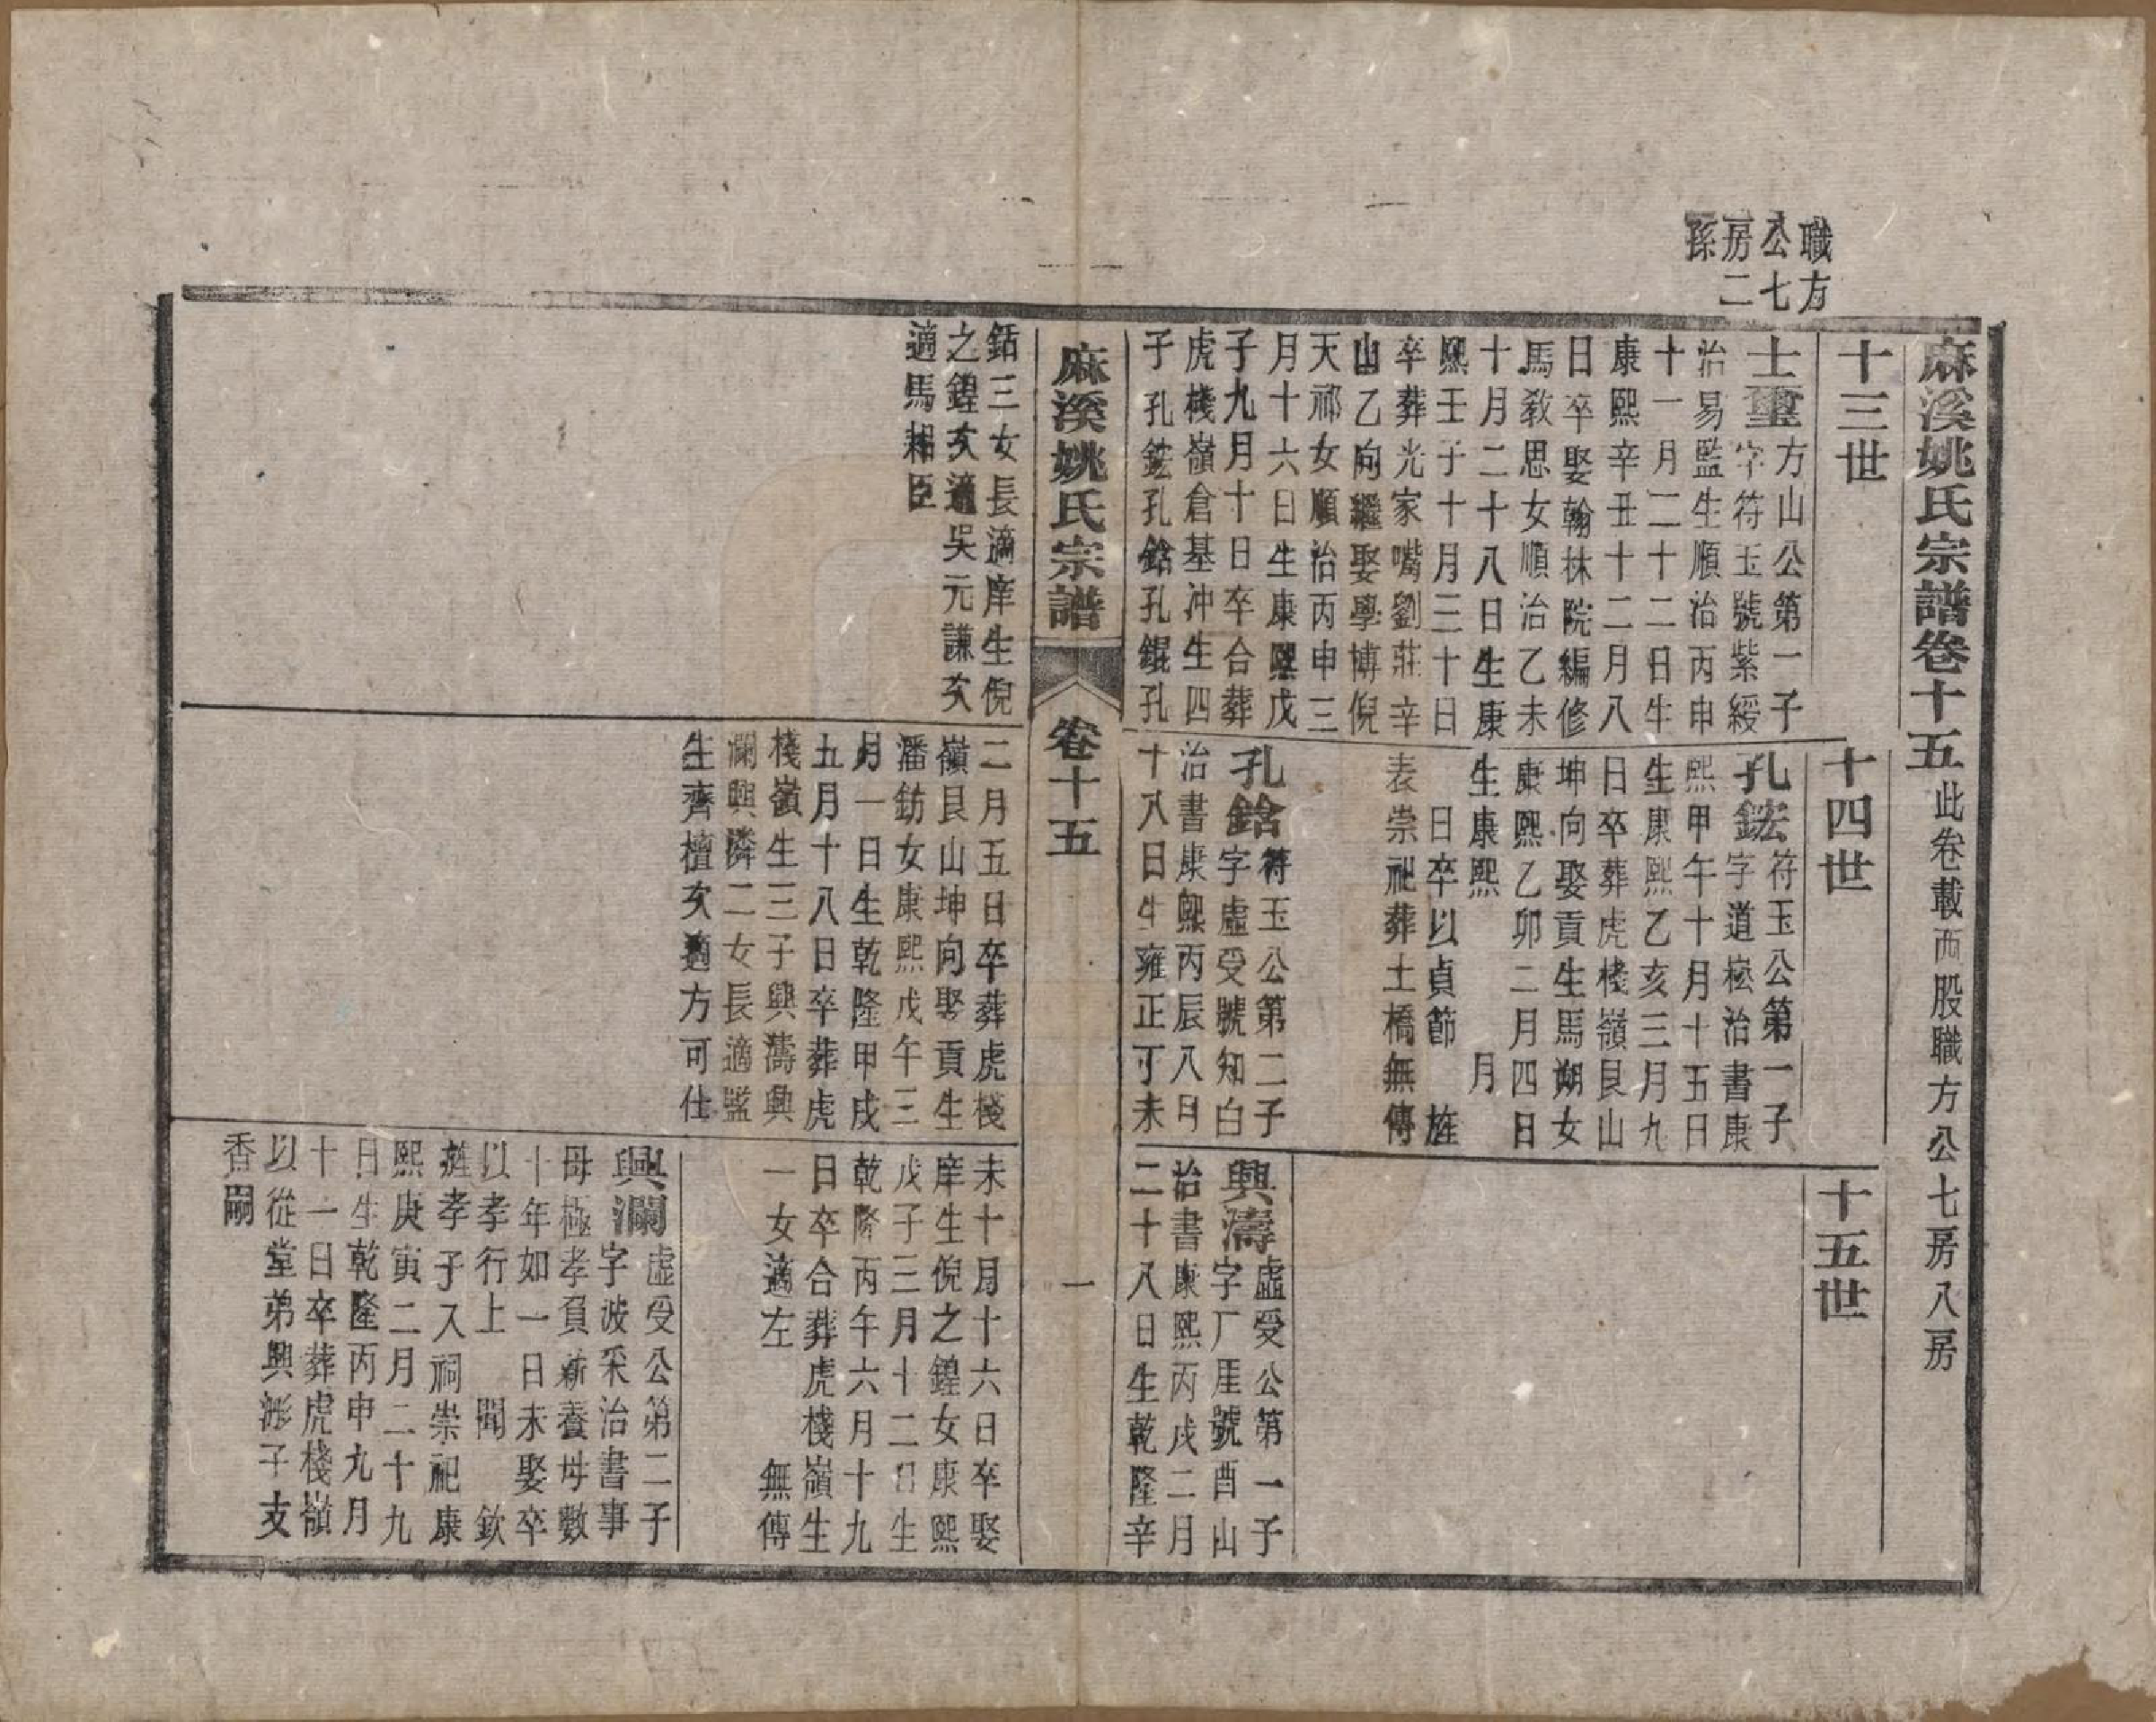 麻溪姚氏宗譜卷十五此卷載西股職方公七房八房
職方
公七
房二
孫
十三世
士璽方山公第一子
字符玉號紫綬
治易監生順治丙申
十一月二十二日生
康熙辛丑十二月八
日卒娶翰林院編修
馬教思女順治乙未
十月二十八日生康
熙壬子十月三十日
卒葬光家嘴劉莊辛
山乙向繼娶學博倪
天祁女順治丙申三
月十六日生康熙戊
子九月十日卒合葬
虎棧嶺倉基沖生四
子孔鋐孔鋡孔錕孔
銛三女長適庠生倪
之鍠次適吳元謙次
適馬相臣
十四世
孔鋐符玉公第一子
字道崧治書康
熙甲午十月十五日
生康熙乙亥三月九
日卒葬虎棧嶺艮山
坤向娶貢生馬淜女
康熙乙卯二月四日
生康熙 月
日卒以貞節 旌
表崇祀葬土橋無傳
孔鋡符玉公第二子
字虛受號知白
治書康熙丙辰八月
十八日生雍正丁未
二月五日卒葬虎棧
嶺艮山坤向娶貢生
潘鈁女康熙戊午三
月一日生乾隆甲戌
五月十八日卒葬虎
棧嶺生三子興濤興
瀾興潾二女長適監
生齊檀次適方可仕
十五世
興濤虛受公第一子
字厂厓號酉山
治書康熙丙戌二月
二十八日生乾隆辛
未十月十六日卒娶
庠生倪之鍠女康熙
戊子三月十二日生
乾隆丙午六月十九
日卒合葬虎棧嶺生
一女適左 無傳
興瀾虛受公第二子
字波采治書事
母極孝負薪養母數
十年如一日未娶卒
以孝行上 聞 欽
旌孝子入祠崇祀康
熙庚寅二月二十九
日生乾隆丙申九月
十一日卒葬虎棧嶺
以從堂弟興漋子支
香嗣
麻溪姚氏宗譜 卷十五 一